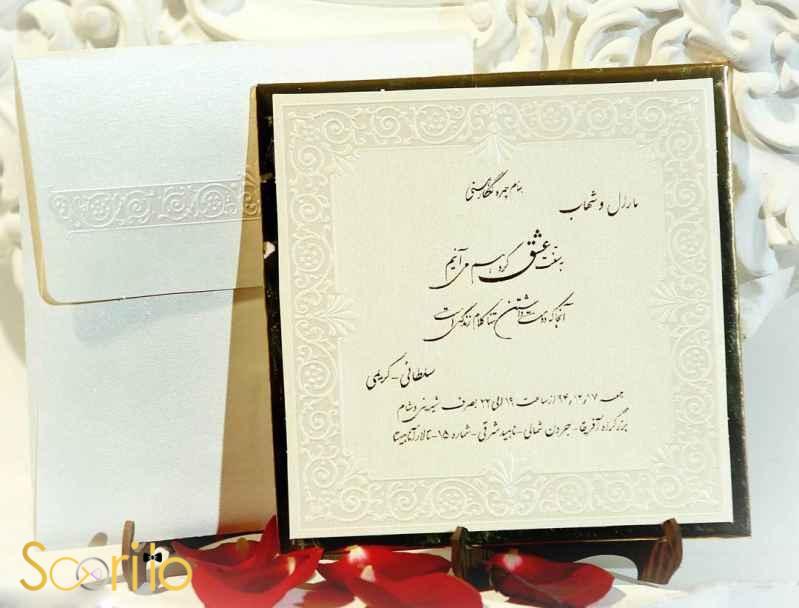 بنام چهره نگار هستی
مارال و شهاب
به سنت عشق گرد هم می آئیم
آنجا که دوست داشتن تنها کلام زندگی است
سلطانی - کریمی
جمعه ۹۴٫۱۲٫۱۷ از ساعت ۱۹ الی ۲۴ بصرف شیرینی و شام
بزرگراه آفریقا - جردن شمالی - ناهید شرقی - شماره ۱۵ - تالار آناهیتا
Scorito